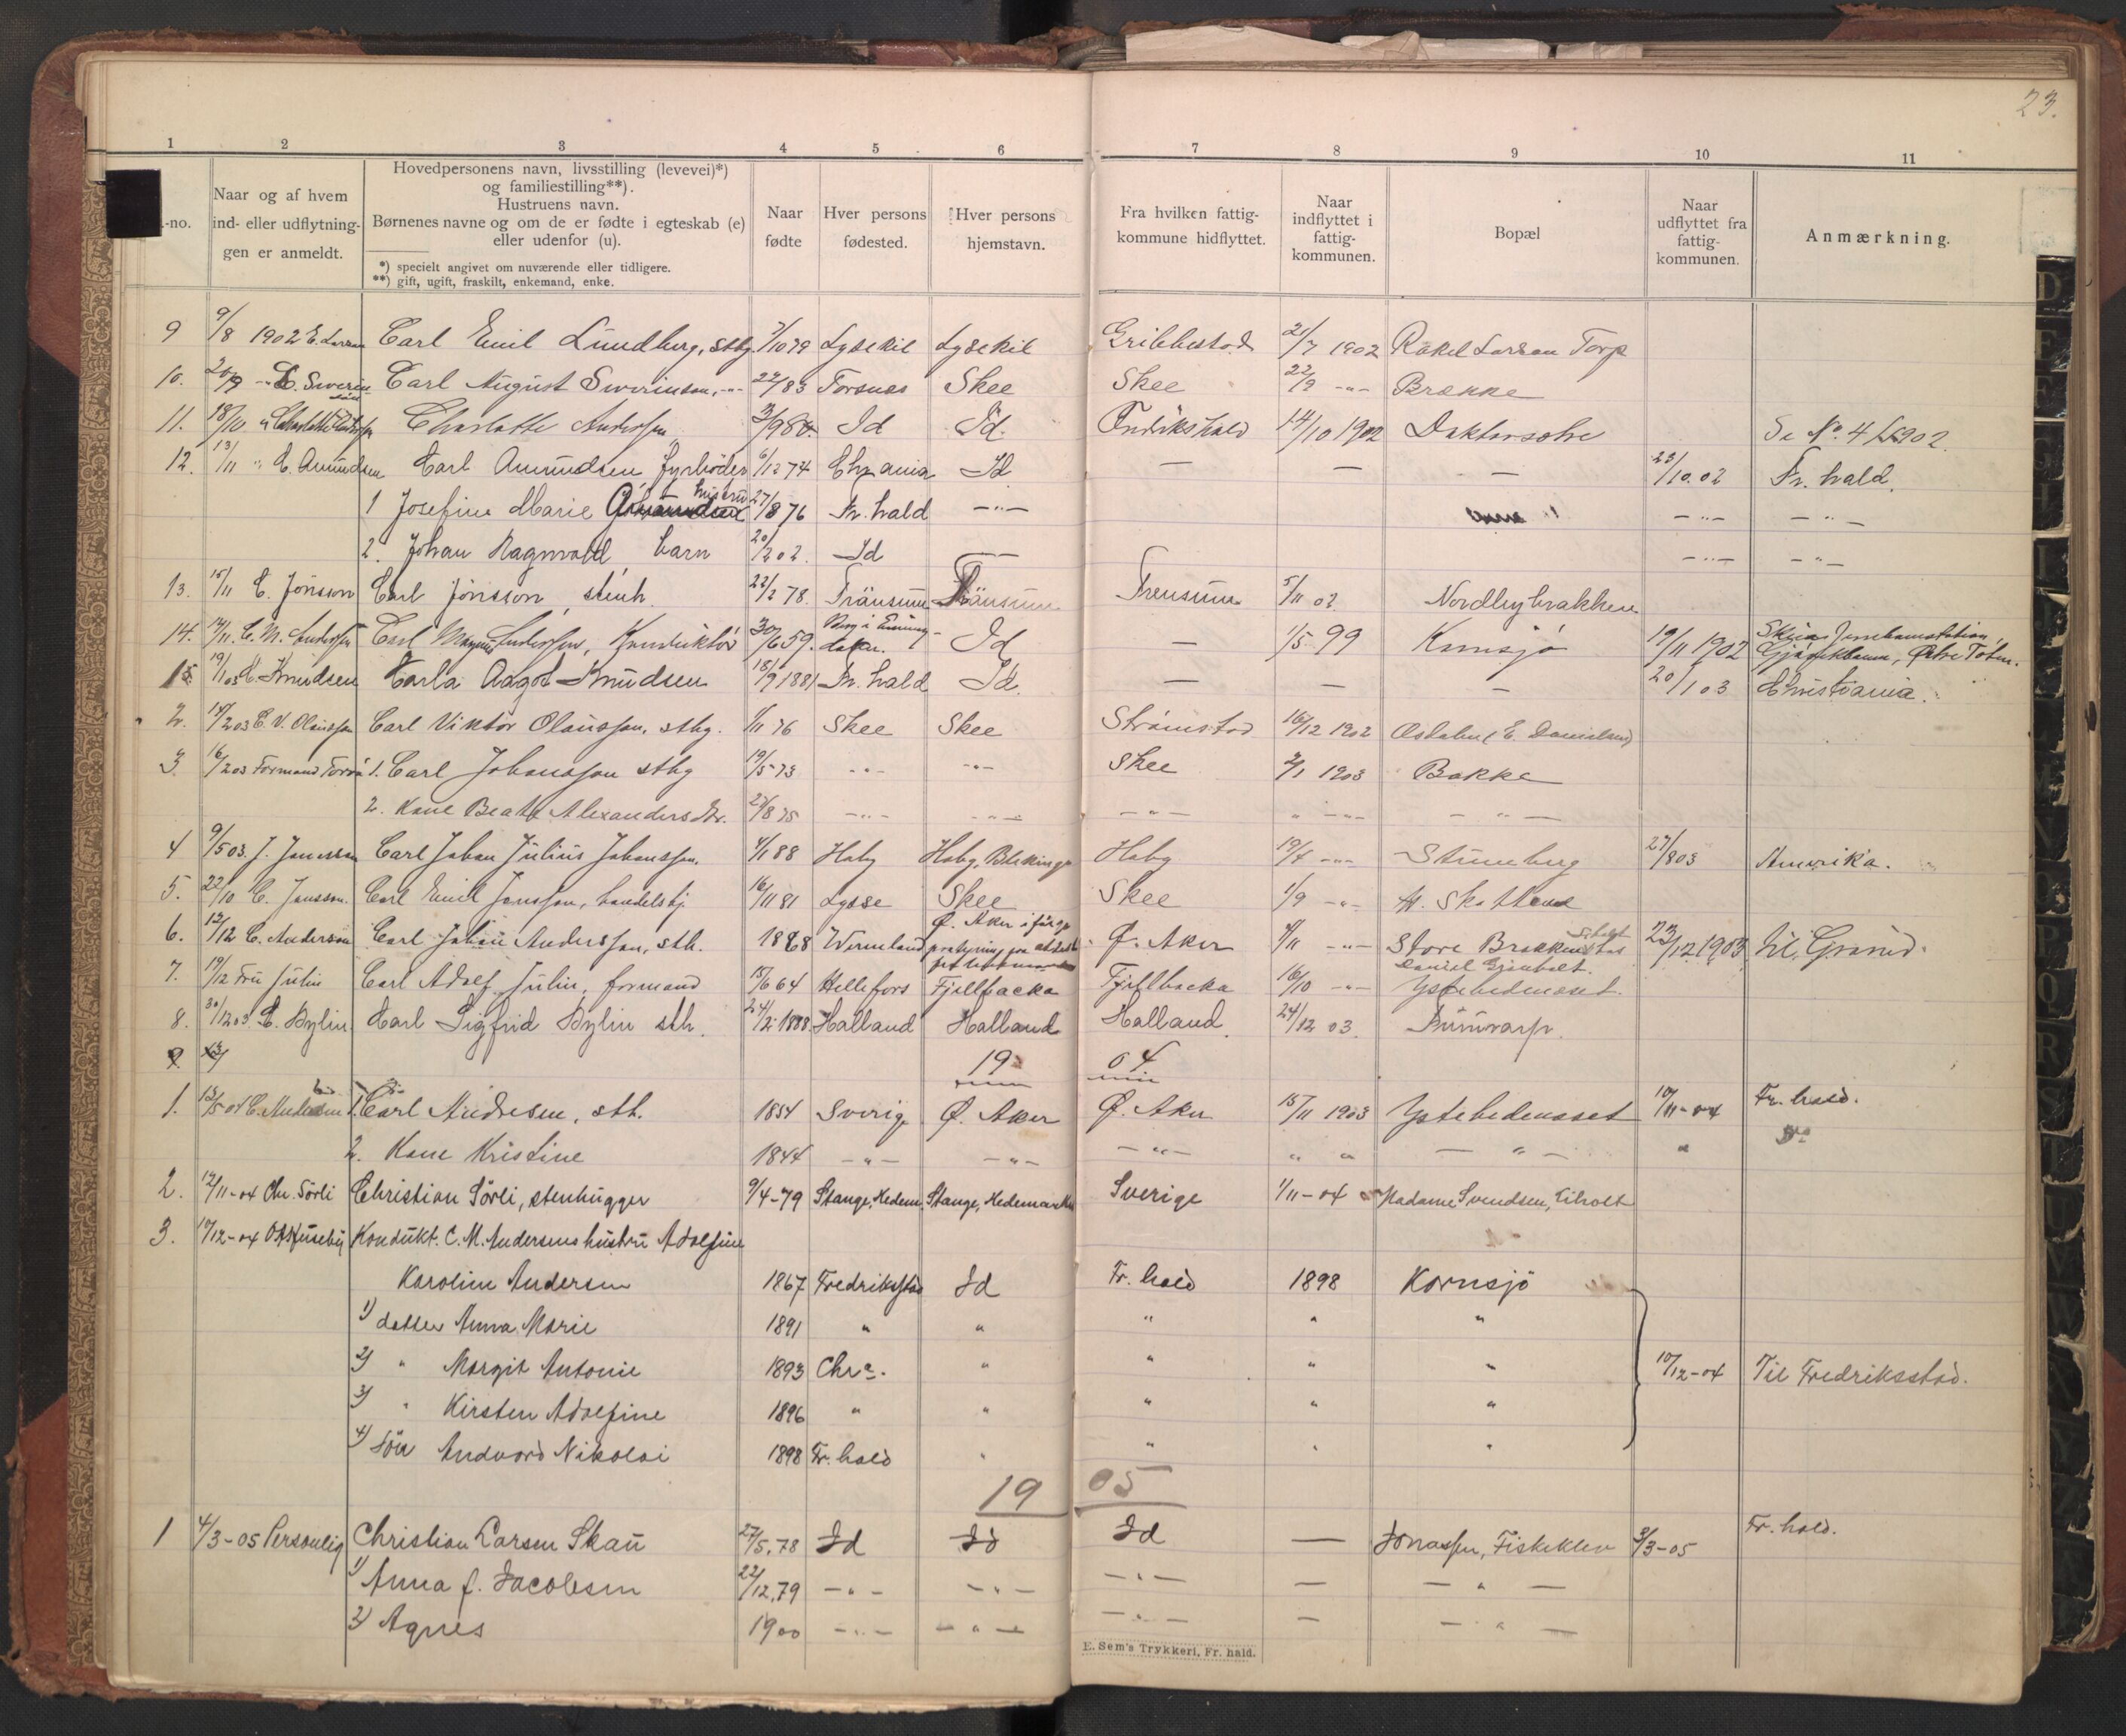 23.
1 2 3 4 5 6 7 8 9 10 11
-no.
Naar og af hvem ind- eller udflytningen er anmeldt.
Hovedpersonens navn, livsstilling (levevei)*)
og familiestilling**).
Hustruens navn.
Børnenes navne og om de er fødte i egteskab (e)
eller udenfor (u).
*) specielt angivet om nuværende eller tidligere.
**) gift, ugift, fraskilt, enkemand, enke.
Naar fødte
Hver persons fødested.
Hver persons hjemstavn.
Fra hvilken fattigkommune hidflyttet.
Naar indflyttet i fattigkommunen.
Bopæl
Naar udflyttet fra fattigkommunen.
Anmærkning.
9 9/8 1902 E. Larsen Carl Emil Lundberg, sthg 7/10 79 Lysekil Lysekil Grebbestad 21/7 1902 Rakel Larsen Torp
10. 20/9 -"- Carl August Swerinson, -"- 83 Torsnes Skee Skee 22/9 -"- Brække
11. 18/10 " Charlotte Andersen Charlotte Andersen Id Id. Fredrikshald 14/10 1902 Se No. 4 1902.
12. 13/11 " C. Amundsen Carl Amundsen fyrbøder 6/12 74 Chrania Id — — — 23/10.02 Fr. hald.
1 Josefine Marie hustru 27/8 76 Fr. hald -"- -"- -"-
2. Johan Ragnvald, barn 20/2 02. Id — -"- -"-
13. 15/11 C. Jönsson Carl Jönsson, stenh. 22/2 78. Tränsum Tränsum Trensum 5/11 02 Nordbybrakken
14. 14/11. C. M. Andersen Carl Magnus Andersen, Konduktør 30/6 59. Id — 1/5 99 Kornsjø 19/11 1902 Østre Toten.
15 19/1 03 C. Knudsen Karla Aagot Knudsen 18/9 1881 Fr. hald Id. — — — 20/1 03 Christiania.
2. 14/2 03 C. V. Olausson Carl Viktor Olausson, sthg. 1/11 76 Skee Skee Strømstad 16/12 1902 (E. Danielsen)
3. 16/2 03 Formand 1. Carl Johansson sthg 19/5 73 -"- -"- Skee 2/1 1903 Bakke
2. Kone Beate Alexandersdtr. 21/8 75 -"- -"- -"- " -"- -"-
4 9/5 03. J. Jonasson Carl Johan Julius Johansson. 4/1 88 Hoby Hoby, Blekinge Hoby 19/4 -"- Stumberg 27/8 03 Amerika.
5. 22/10 C. Jansson. Carl Emil Jansson, handelsbj. 16/11 81 Lysse Skee Skee 1/9 -"-
6. 12/12 C. Anderson Carl Johan Andersson, sth. 1868 Wermeland Ø. Aker Ø. Aker 4/11 -"- Store 23/12 1903 til Grimd.
7. 19/12 Fru Julin Carl Adolf Julin, formand 15/6 64 Hellefors Fjellbacka Fjellbacka 16/10 -"- Ystehedemoset
8. 30/12 03. C. Bylin Karl Sigfrid Bylin sth. 24/2 1888 Halland Halland Halland. 24/12 03.
1904
1. 12/5 04 C. Andresen 1. Carl Andresen, sth. 1854 Sverig Ø. Aker Ø. Aker 15/11 1903 Ystehedemoset 10/11-04 Fr. hald.
2. Kone Kristine 1844 -"- -"- -"- " " -"- "
2. 12/11-04 Chr. Sörli Christian Sörli, stenhugger 9/4-79 Stange, Hedem. Stange, Hedemarken Sverige 1/11-04 Madame Svendsen, Eiholt
3. 10/12-04 Kondukt. C. M. Andersens hustru Adolfine
Karoline Andersen 1867 Fredriksstad Id Fr. hald 1898 Kornsjö
1) datter Anna Marie 1891 " " " " "
2) " Margit Antonie 1893 Chra. " " " " 10/12-04 Til Fredriksstad.
3) " Kirsten Adolfine 1896 " " " " "
4) Sön Andvord Nikolai 1898 Fr. hald " " " "
1905
1 4/3-05 Personlig Christian Larsen Skau 27/5.78 Id Id Id — Jonassen, Fiskeklev 3/3-05 Fr. hald.
1) Anna f. Jacobsen 22/12.79 -"- -"- -"- — -"-
2) Agnes 1900 -"- -"- -"- — -"-
E. Sem's Trykkeri, Fr. hald.